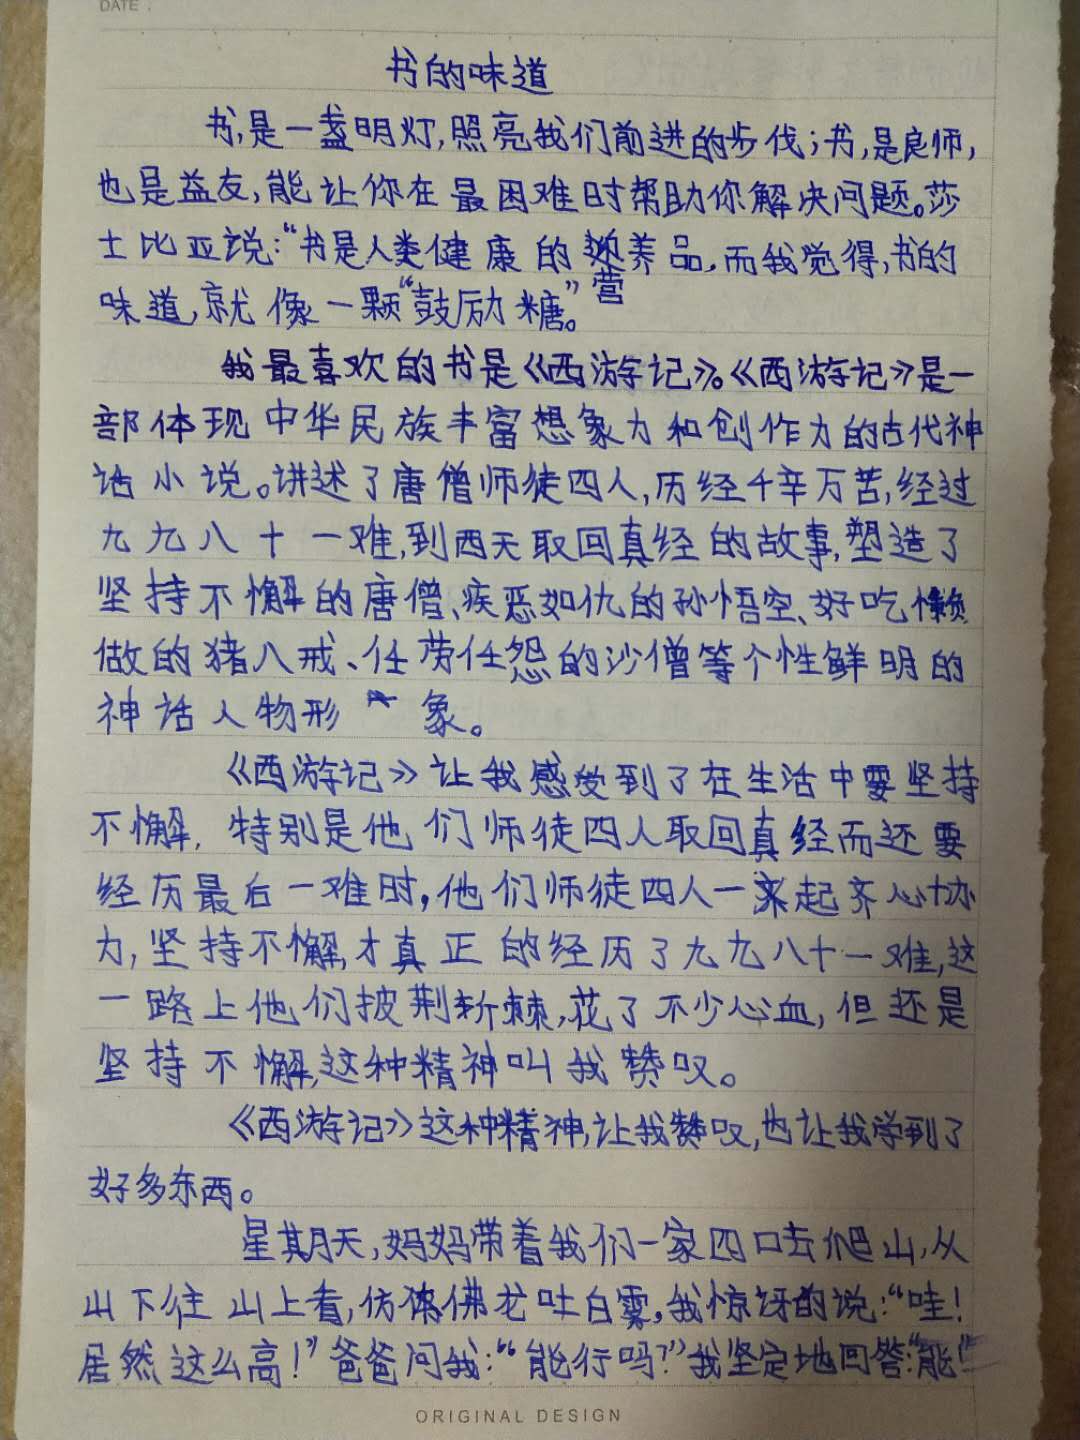 DATE .
书的味道
书,是一盏明灯,照亮我们前进的步伐;书,是良师,
也是益友,能让你在最困难时帮助你解决问题。莎
士比亚说:“书是人类健康的营养品,而我觉得,书的
味道,就像一颗“鼓励糖”。
我最喜欢的书是《西游记》。《西游记》是一
部体现中华民族丰富想象力和创作力的古代神
话小说。讲述了唐僧师徒四人,历经千辛万苦,经过
九九八十一难,到西天取回真经的故事,塑造了
坚持不懈的唐僧、疾恶如仇的孙悟空、好吃懒
做的猪八戒、任劳任怨的沙僧等个性鲜明的
神话人物形象。
《西游记》让我感受到了在生活中要坚持
不懈,特别是他们师徒四人取回真经而还要
经历最后一难时,他们师徒四人一起齐心协
力,坚持不懈,才真正的经历了九九八十一难,这
一路上他们披荆斩棘,花了不少心血,但还是
坚持不懈,这种精神叫我赞叹。
《西游记》这种精神,让我赞叹,也让我学到了
好多东西。
星期天,妈妈带着我们一家四口去爬山,从
山下往山上看,仿佛龙吐白雾。我惊讶的说:“哇!
居然这么高!”爸爸问我:“能行吗?”我坚定地回答:“能!”
ORIGINAL DESIGN